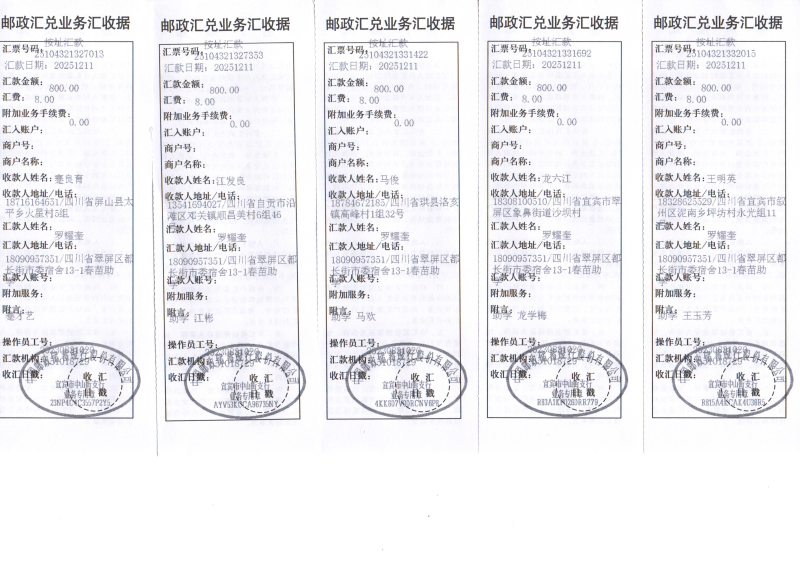 邮政汇兑业务汇收据
按址汇款
汇票号码:
23104321327013
汇款日期: 20251211
汇款金额: 800.00
汇费: 8.00
附加业务手续费: 0.00
汇入账户:
商户号:
商户名称:
收款人姓名: 蹇良育
收款人地址/电话:
18716164651/四川省屏山县太
平乡火星村5组
汇款人姓名: 罗耀奎
汇款人地址/电话:
18090957351/四川省翠屏区都
长街市委宿舍13-1春苗助
汇款人账号:
附加服务:
附言:
蹇才艺
操作员工号:
汇款机构:
收汇日戳:
收汇
日戳
宜宾市中山街支行
业务专用章
邮政汇兑业务汇收据
按址汇款
汇票号码:
23104321327353
汇款日期: 20251211
汇款金额: 800.00
汇费: 8.00
附加业务手续费: 0.00
汇入账户:
商户号:
商户名称:
收款人姓名: 江发良
收款人地址/电话:
13541694027/四川省自贡市沿
滩区邓关镇顺昌美村6组46
汇款人姓名: 罗耀奎
汇款人地址/电话:
18090957351/四川省翠屏区都
长街市委宿舍13-1春苗助
学
汇款人账号:
附加服务:
附言:
助学 江彬
操作员工号:
汇款机构:
收汇日戳:
收汇
日戳
宜宾市中山街支行
业务专用章
邮政汇兑业务汇收据
按址汇款
汇票号码:
23104321331422
汇款日期: 20251211
汇款金额: 800.00
汇费: 8.00
附加业务手续费: 0.00
汇入账户:
商户号:
商户名称:
收款人姓名: 马俊
收款人地址/电话:
18784672185/四川省珙县洛亥
镇高峰村1组32号
汇款人姓名: 罗耀奎
汇款人地址/电话:
18090957351/四川省翠屏区都
长街市委宿舍13-1春苗助
学
汇款人账号:
附加服务:
附言:
助学 马欢
操作员工号:
汇款机构:
收汇日戳:
收汇
日戳
宜宾市中山街支行
业务专用章
邮政汇兑业务汇收据
按址汇款
汇票号码:
23104321331692
汇款日期: 20251211
汇款金额: 800.00
汇费: 8.00
附加业务手续费: 0.00
汇入账户:
商户号:
商户名称:
收款人姓名: 龙六江
收款人地址/电话:
18308100510/四川省宜宾市翠
屏区象鼻街道沙坝村
汇款人姓名: 罗耀奎
汇款人地址/电话:
18090957351/四川省翠屏区都
长街市委宿舍13-1春苗助
学
汇款人账号:
附加服务:
附言:
助学 龙学梅
操作员工号:
汇款机构:
收汇日戳:
收汇
日戳
宜宾市中山街支行
业务专用章
邮政汇兑业务汇收据
按址汇款
汇票号码:
23104321332015
汇款日期: 20251211
汇款金额: 800.00
汇费: 8.00
附加业务手续费: 0.00
汇入账户:
商户号:
商户名称:
收款人姓名: 王明英
收款人地址/电话:
18328625529/四川省宜宾市叙
州区泥南乡坪坊村永光组11
汇款人姓名: 罗耀奎
汇款人地址/电话:
18090957351/四川省翠屏区都
长街市委宿舍13-1春苗助
学
汇款人账号:
附加服务:
附言:
助学 王玉芳
操作员工号:
汇款机构:
收汇日戳:
收汇
日戳
宜宾市中山街支行
业务专用章